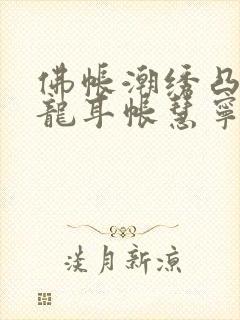 佛帐潮绣凸
龍耳帐慧寧
淡月新涼